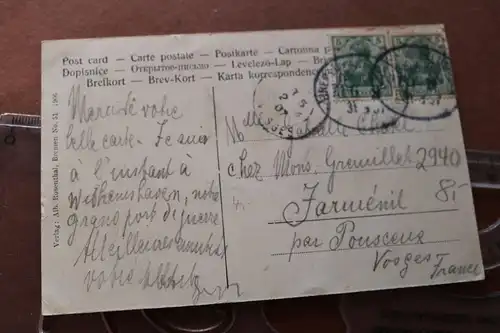 Post card — Carte postale — Postkarte — Cartonna p
Dopisnice — Открытое-письмо — Levelező-Lap — Br
Brefkort — Brev-Kort — Karta korrespondenc
Verlag: Alb. Rosenthal, Bremen No. 51 1906
votre
belle carte. Je suis
à l'instant à
Wilhelmshaven, notre
grand port de guerre
Meilleures
votre
Mlle
chez Mons. Gremillet 2940
Jarménil 8.-
par Pouxeux
Vosges
France